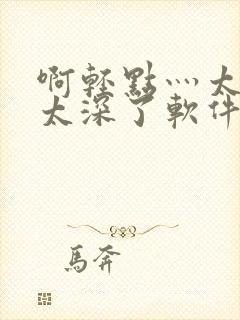 啊輕點灬太
太深了軟件
馬奔